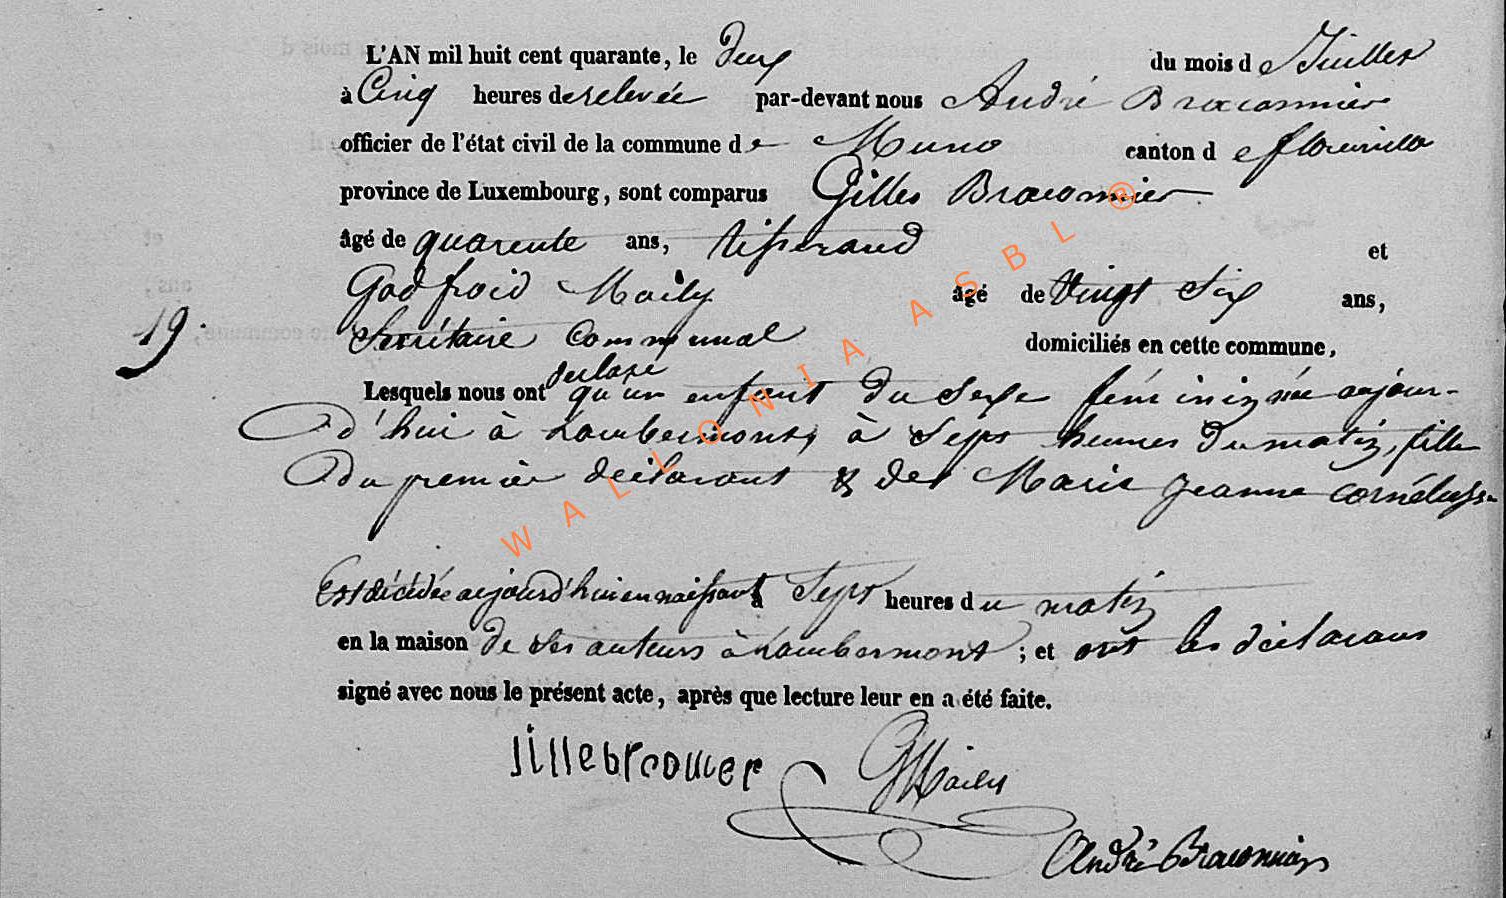 L'AN mil huit cent quarante, le deux du mois de Juillet
à Cinq heures de relevée par-devant nous André Braconnier
officier de l'état civil de la commune de Muno canton de florenville
province de Luxembourg, sont comparus Gilles Braconnier
âgé de quarente ans, tisserand et
Godfroid Maily âgé de Vingt Six ans,
19. Secrétaire Communal domiciliés en cette commune,
Lesquels nous ont déclaré qu'un enfant du sexe féminin née aujour-
d'hui à Lambermont, à Sept heures du matin, fille
du premier déclarant & de Marie Jeanne
Est décédée aujourd'hui en naissant à Sept heures du matin
en la maison de ses auteurs à Lambermont ; et ont les déclarans
signé avec nous le présent acte, après que lecture leur en a été faite.
GMaily
André Braconnier
WALLONIA ASBL ®